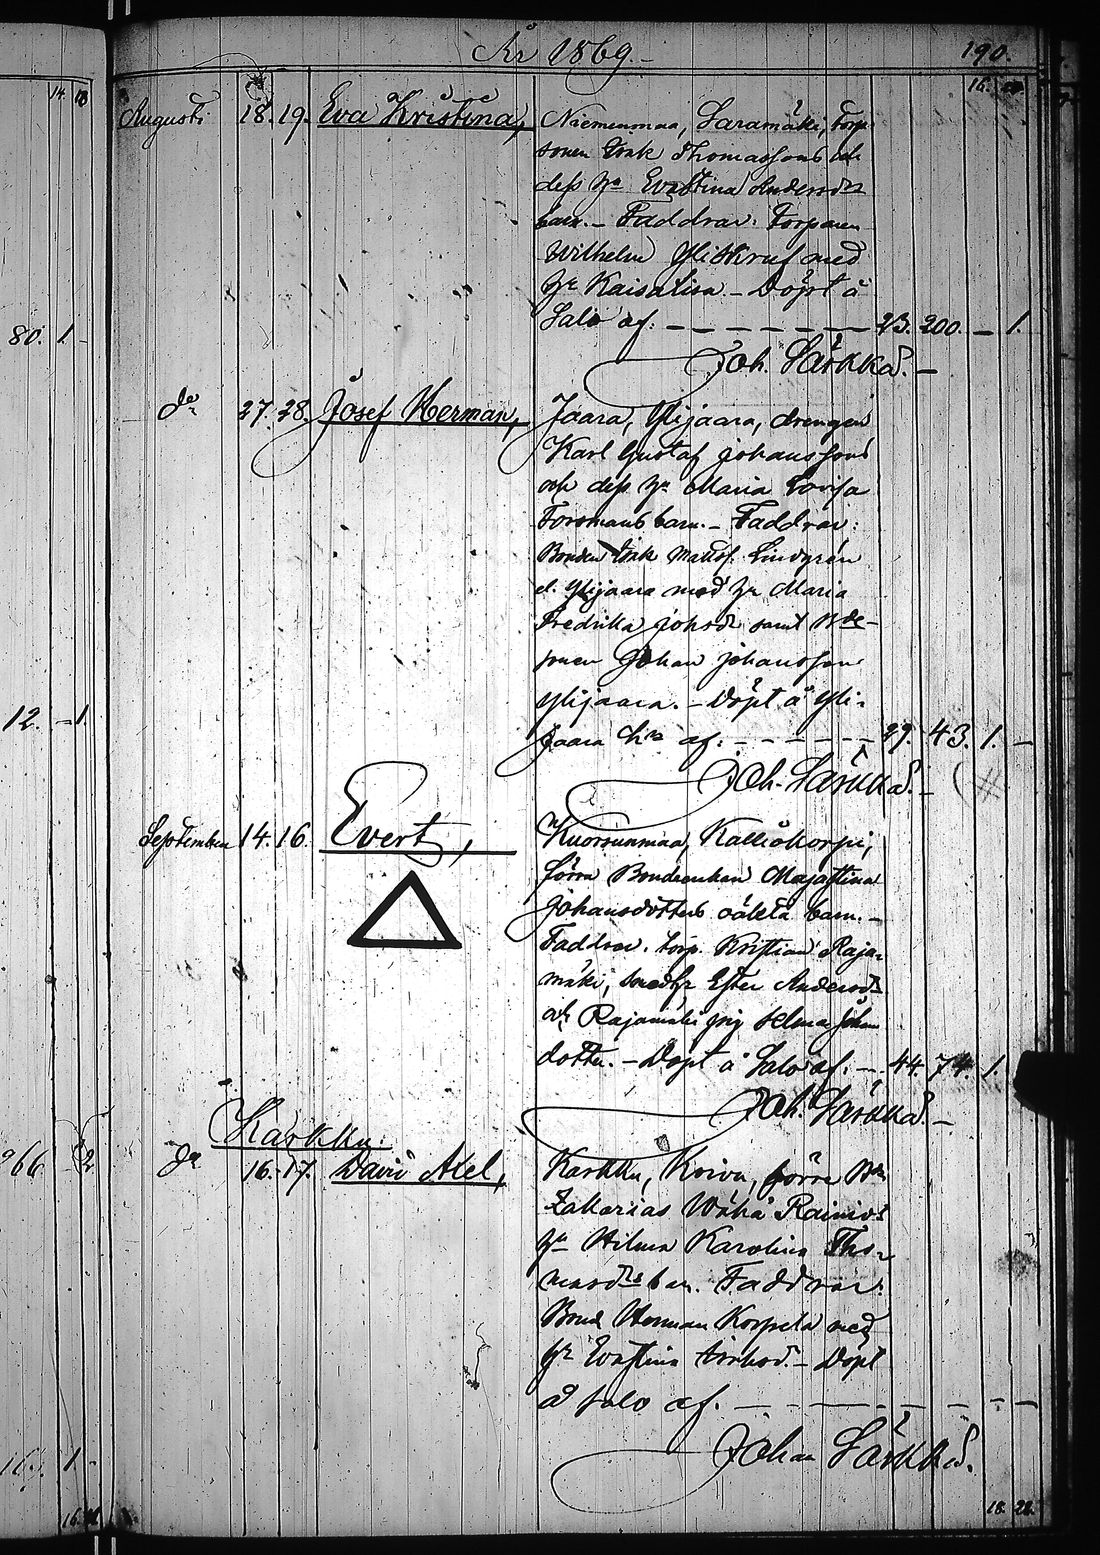 År 1869.
190.
14. 18
16.
Augusti 18. 19. Eva Kristina, Niemenmaa, Saramäki, torp-
sonen Isak Thomassons och
dess hu Evastina Andersdrs
barn. - Faddrar: Torparen
Wilhelm Yliskruf med
hr Kaisalisa. - Döpt å
Salo af: 23. 200. - 1.
80. 1. -
Joh. Särkkä. -
do 27. 28. Josef Herman, Jaara, Ylijaara, drengen
Karl Gustaf Johanssons
och dess hu Maria Lovisa
Forsmans barn. - Faddrar:
Bonden Isak Mattsf. Lindgren
el. Ylijaara med hr Maria
Fredrika Johsdr samt Bde-
sonen Johan Johansson
Ylijaara. - Döpt å Yli-
12. - 1.
Jaara hn af: - 29. 43. 1. -
Joh. Särkkä. -
September 14. 16. Evert, Kuorsunmaa, Kalliokorpi,
förra Bondeenkan Majastina
Johansdotters oäkta barn. -
Faddrar. torp. Kristian Raja-
mäki, med hr Ester Andersdr
och Rajamäki pig Selma Johan
dotter. - Döpt å Salo af: - 44. 74. 1.
Joh. Särkkä. -
Karkku:
266. 2
do 16. 17. David Axel, Karkku, Koivu, förre Bn
Zakarias Wähä Rainios
hu Hilma Karolina Tho-
masdrs barn. Faddrar:
Bond Herman Korpela med
hr Evastina - Döpt
å Salo af.
Johan Särkkä.
16. 1. -
18. 22.